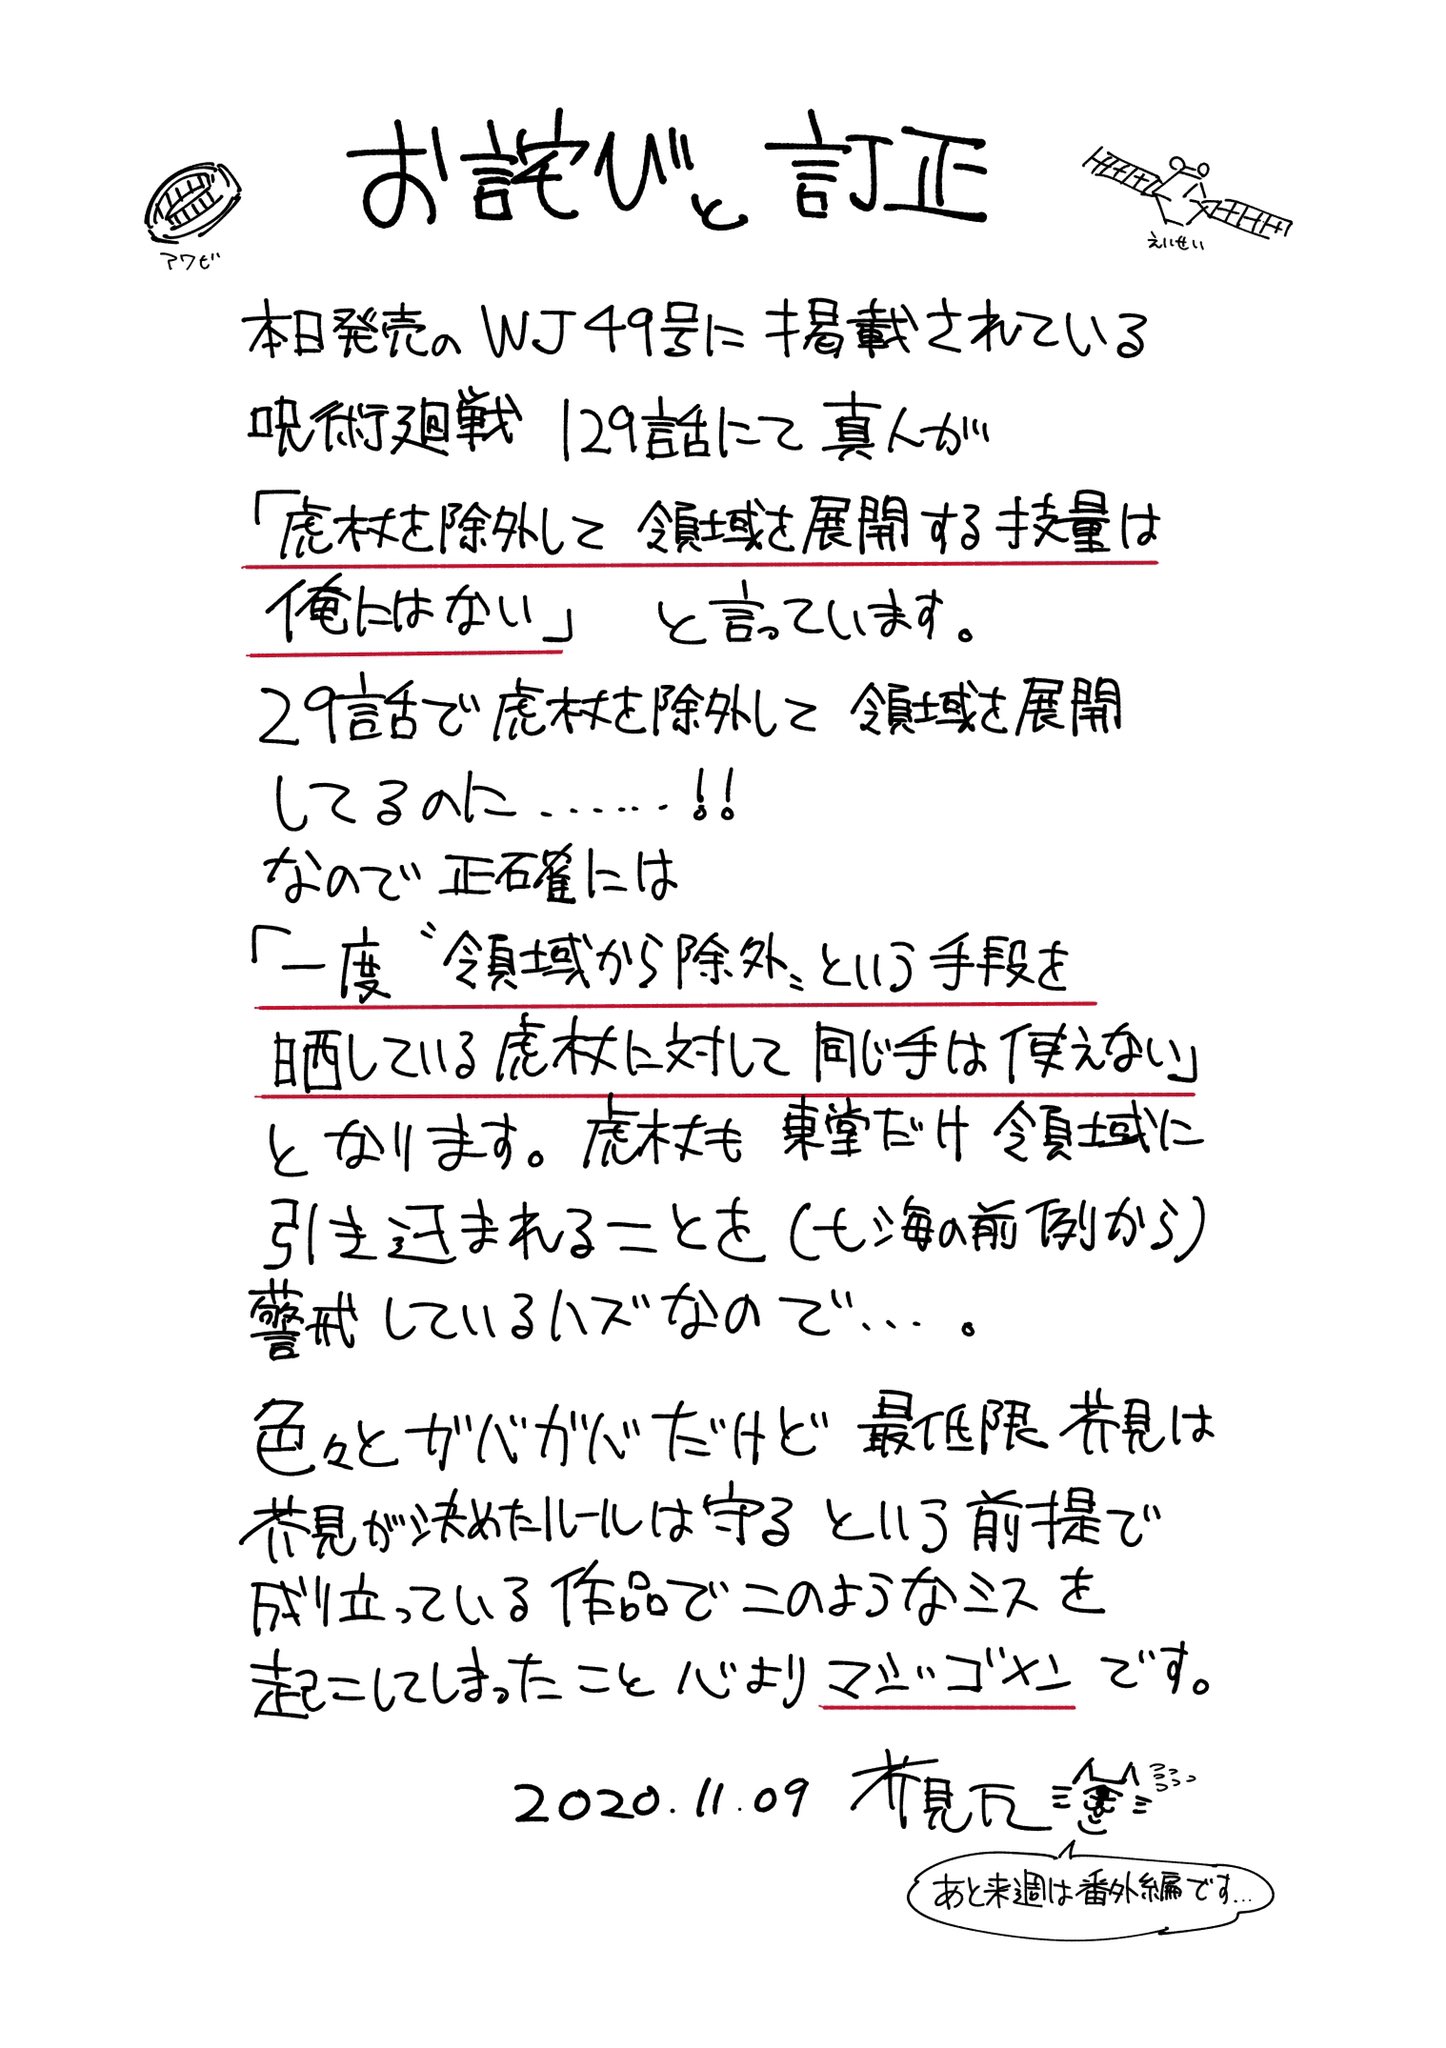 お詫びと訂正
アワビ
えいせい
本日発売のWJ49号に掲載されている
呪術廻戦 129話にて真人が
「虎杖を除外して領域を展開する技量は
俺にはない」 と言っています。
29話で虎杖を除外して領域を展開
してるのに……!!
なので正確には
「一度〝領域から除外〟という手段を
晒している虎杖に対して同じ手は使えない」
となります。虎杖も東堂だけ領域に
引き込まれることを(七海の前例から)
警戒しているハズなので…。
色々とガバガバだけど最低限芥見は
芥見が決めたルールは守るという前提で
成り立っている作品でこのようなミスを
起こしてしまったこと心よりマジゴメンです。
2020.11.09 芥見下々
あと来週は番外編です…